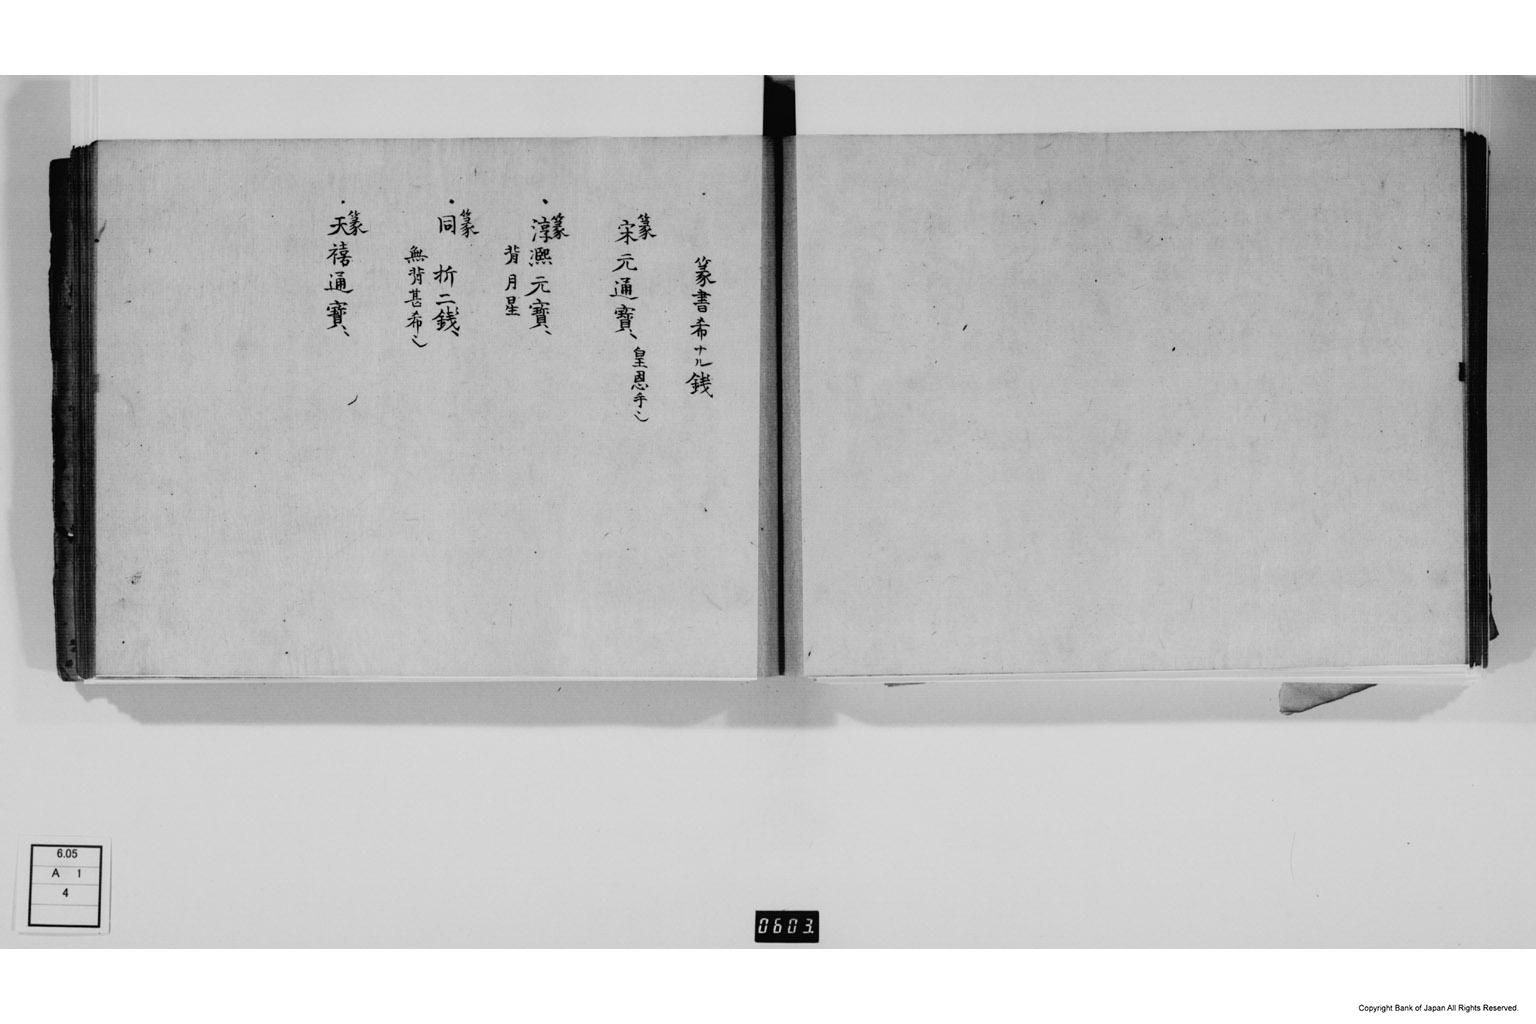 篆書希ナル銭
篆
宋元通寳、
皇恩手也
篆
・淳熈元寳、
背月星
篆
・同 折二銭、
無背甚希也
篆
・天禧通寳、
6.05
A 1
4
0603.
Copyright Bank of Japan All Rights Reserved.